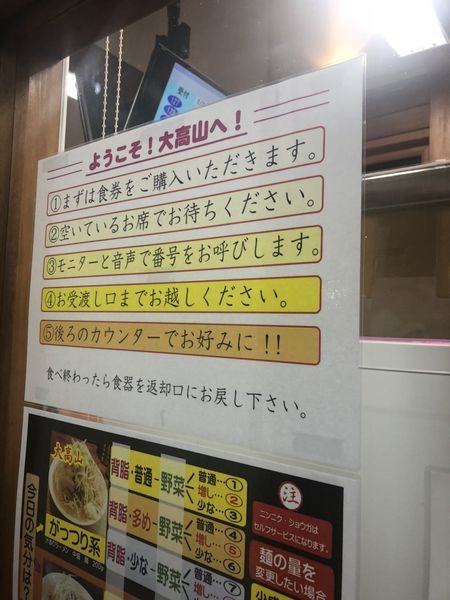 受付
ようこそ！大高山へ！
①まずは食券をご購入いただきます。
②空いているお席でお待ちください。
③モニターと音声で番号をお呼びします。
④お受渡し口までお越しください。
⑤後ろのカウンターでお好みに!!
食べ終わったら食器を返却口にお戻し下さい。
大高山
今日の気分は？
がっつり系
背脂・普通－野菜
普通…①
増し…②
少な…③
背脂・多め－野菜
普通…④
増し…⑤
少な…⑥
背脂・少な－野菜
普通…⑦
増し
注
ニンニク・ショウガは
セルフサービスになります。
麺の量を
変更したい場合